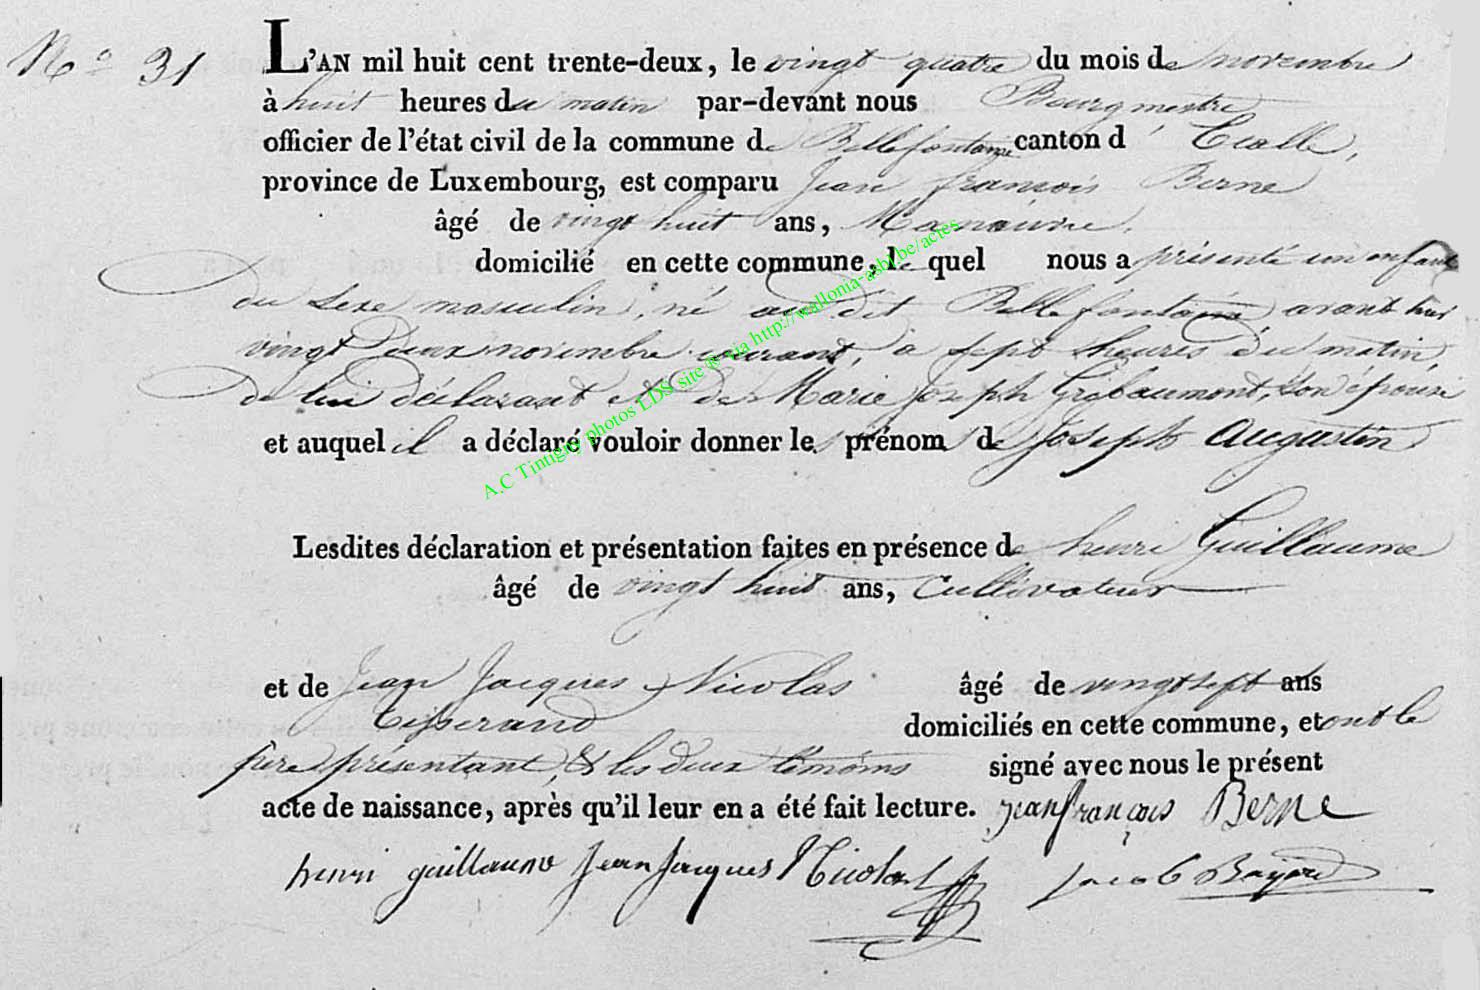 N.° 31 L'AN mil huit cent trente-deux, le vingt quatre du mois de novembre
à huit heures du matin par-devant nous Bourgmestre
officier de l'état civil de la commune de Bellefontaine canton d' Etalle,
province de Luxembourg, est comparu Jean françois Berne
âgé de vingt huit ans, Manœuvre,
domicilié en cette commune, le quel nous a présenté un enfant
du sexe masculin, né au dit Bellefontaine avant hier
vingt deux novembre courant, à sept heures du matin
de lui déclarant et de Marie Joseph Grobaumont, son épouse
et auquel il a déclaré vouloir donner les prénoms de Joseph Augustin
Lesdites déclaration et présentation faites en présence de henri Guillaume
âgé de vingt huit ans, Cultivateur
et de Jean Jacques Nicolas âgé de vingt sept ans
tisserand domiciliés en cette commune, et ont le
père présentant, & les deux témoins signé avec nous le présent
acte de naissance, après qu'il leur en a été fait lecture. jean françois Berne
henri guillaume Jean Jacques Nicolas Jacob Bayard
A.C Tintigny photos LDS site ® via http://wallonia-asbl.be/actes